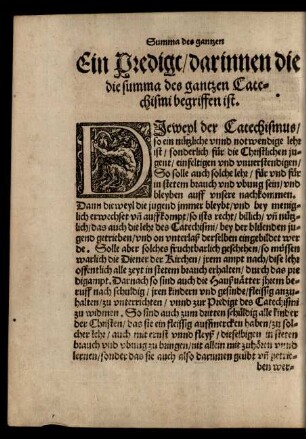 Summa des gantzen
Ein Predigt/darinnen die
die summa des gantzen Cate-
chismi begriffen ist.
DIeweyl der Catechismus/
so ein nützliche vnnd notwendige lehr
ist / sonderlich für die Christlichen ju-
gent/ einfeltigen vnd vnuerstendigen/
So solle auch solche lehr / für vnd für
in stetem brauch vnd vbung sein/ vnd
bleyben auff vnsere nachkommen.
Dann dieweyl die jugend jmmer bleybt/ vnd bey menig-
lich erwechset vñ auffkompt/ so ists recht/ billich/ vñ nütz-
lich/ das auch die lehr des Catechismi/ bey der blüenden ju-
gend getrieben/ vnd on vnterlaß derselben eingebildet wer-
de. Solle aber solches fruchtbarlich geschehen/ so müssen
warlich die Diener der Kirchen/ jrem ampt nach/ dise lehr
offentlich alle zeyt in stetem brauch erhalten/ durch das pre-
digampt. Darnach so sind auch die Haußvätter jhrem be-
ruff nach schuldig / jren kindern vnd gesinde/ fleissig anzu-
halten/ zu vnterrichten / vnnd zur Predigt des Catechismi
zu widmen. So sind auch zum dritten schuldig alle kinder
der Christen/ das sie ein fleissig auffmercken haben/ zu sol-
cher lehr / auch mit ernst vnnd fleyß/ dieselbigen in stetem
brauch vnd vbung zu bringen/ nit allein mit zuhören vnnd
lernen/ sonder das sie auch also darinnen geübt vñ getrie-
ben wer-